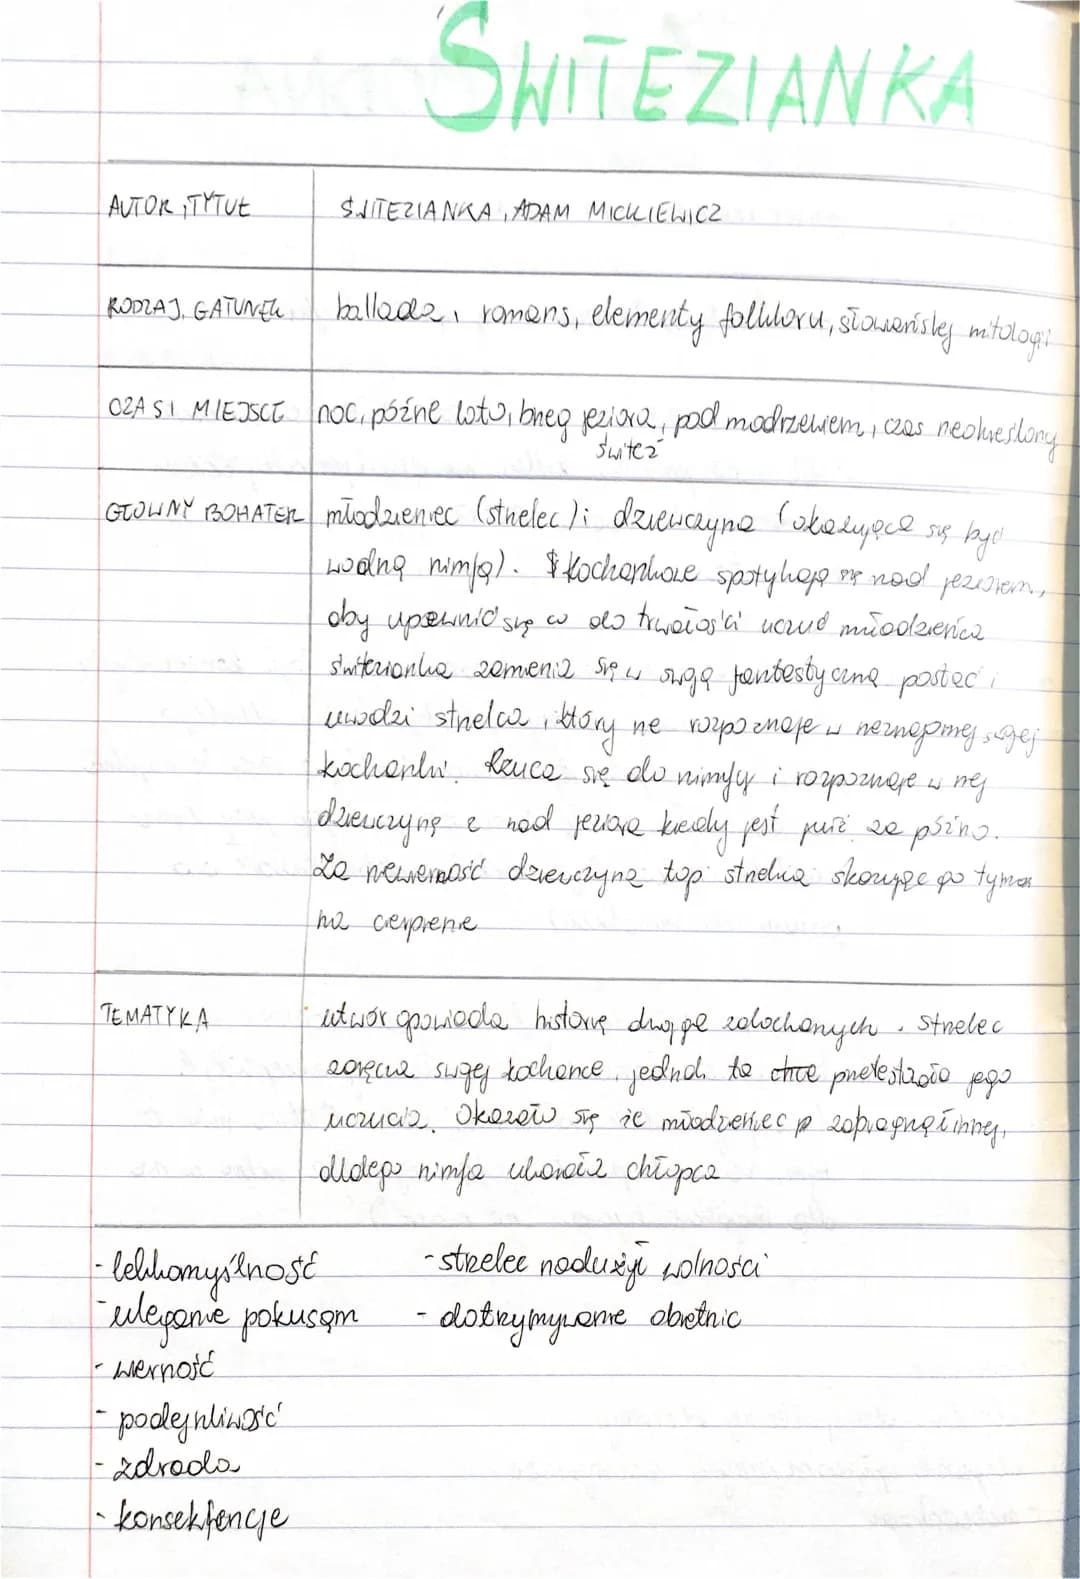 ŚWITEZIANKA
AUTOR, TYTUŁ ŚWITEZIANKA, ADAM MICKIEWICZ
RODZAJ, GATUNEK ballada, romans, elementy folkloru, słowiańskiej mitologii
CZAS I MIEJSCE noc, późne lato, brzeg jeziora, pod modrzewiem, czas nieokreślony
Świteź
GŁÓWNY BOHATER młodzieniec (strzelec) i dziewczyna (okazująca się być
wodną nimfą). Kochankowie spotykają się nad jeziorem,
aby upewnić się co do trwałości uczuć młodzieńca
świtezianka zamienia się w swoją fantastyczną postać i
uwodzi strzelca, który nie rozpoznaje w nieznajomej swojej
kochanki. Rzuca się do nimfy i rozpoznaje w niej
dziewczynę z nad jeziora kiedy jest już za późno.
Za niewierność dziewczyna topi strzelca skazując go tym
na cierpienie
TEMATYKA utwór opowiada historię dwojga zakochanych. Strzelec
zaręcza swojej kochance, jednak ta chce
jego
uczucia. Okazało się że młodzieniec zapragnął innej,
dlatego nimfa ukarała chłopca
- lekkomyślność - strzelec nadużył wolności
- uleganie pokusom - dotrzymywanie obietnic
- wierność
- podejrzliwość
- zdrada
- konsekfencje